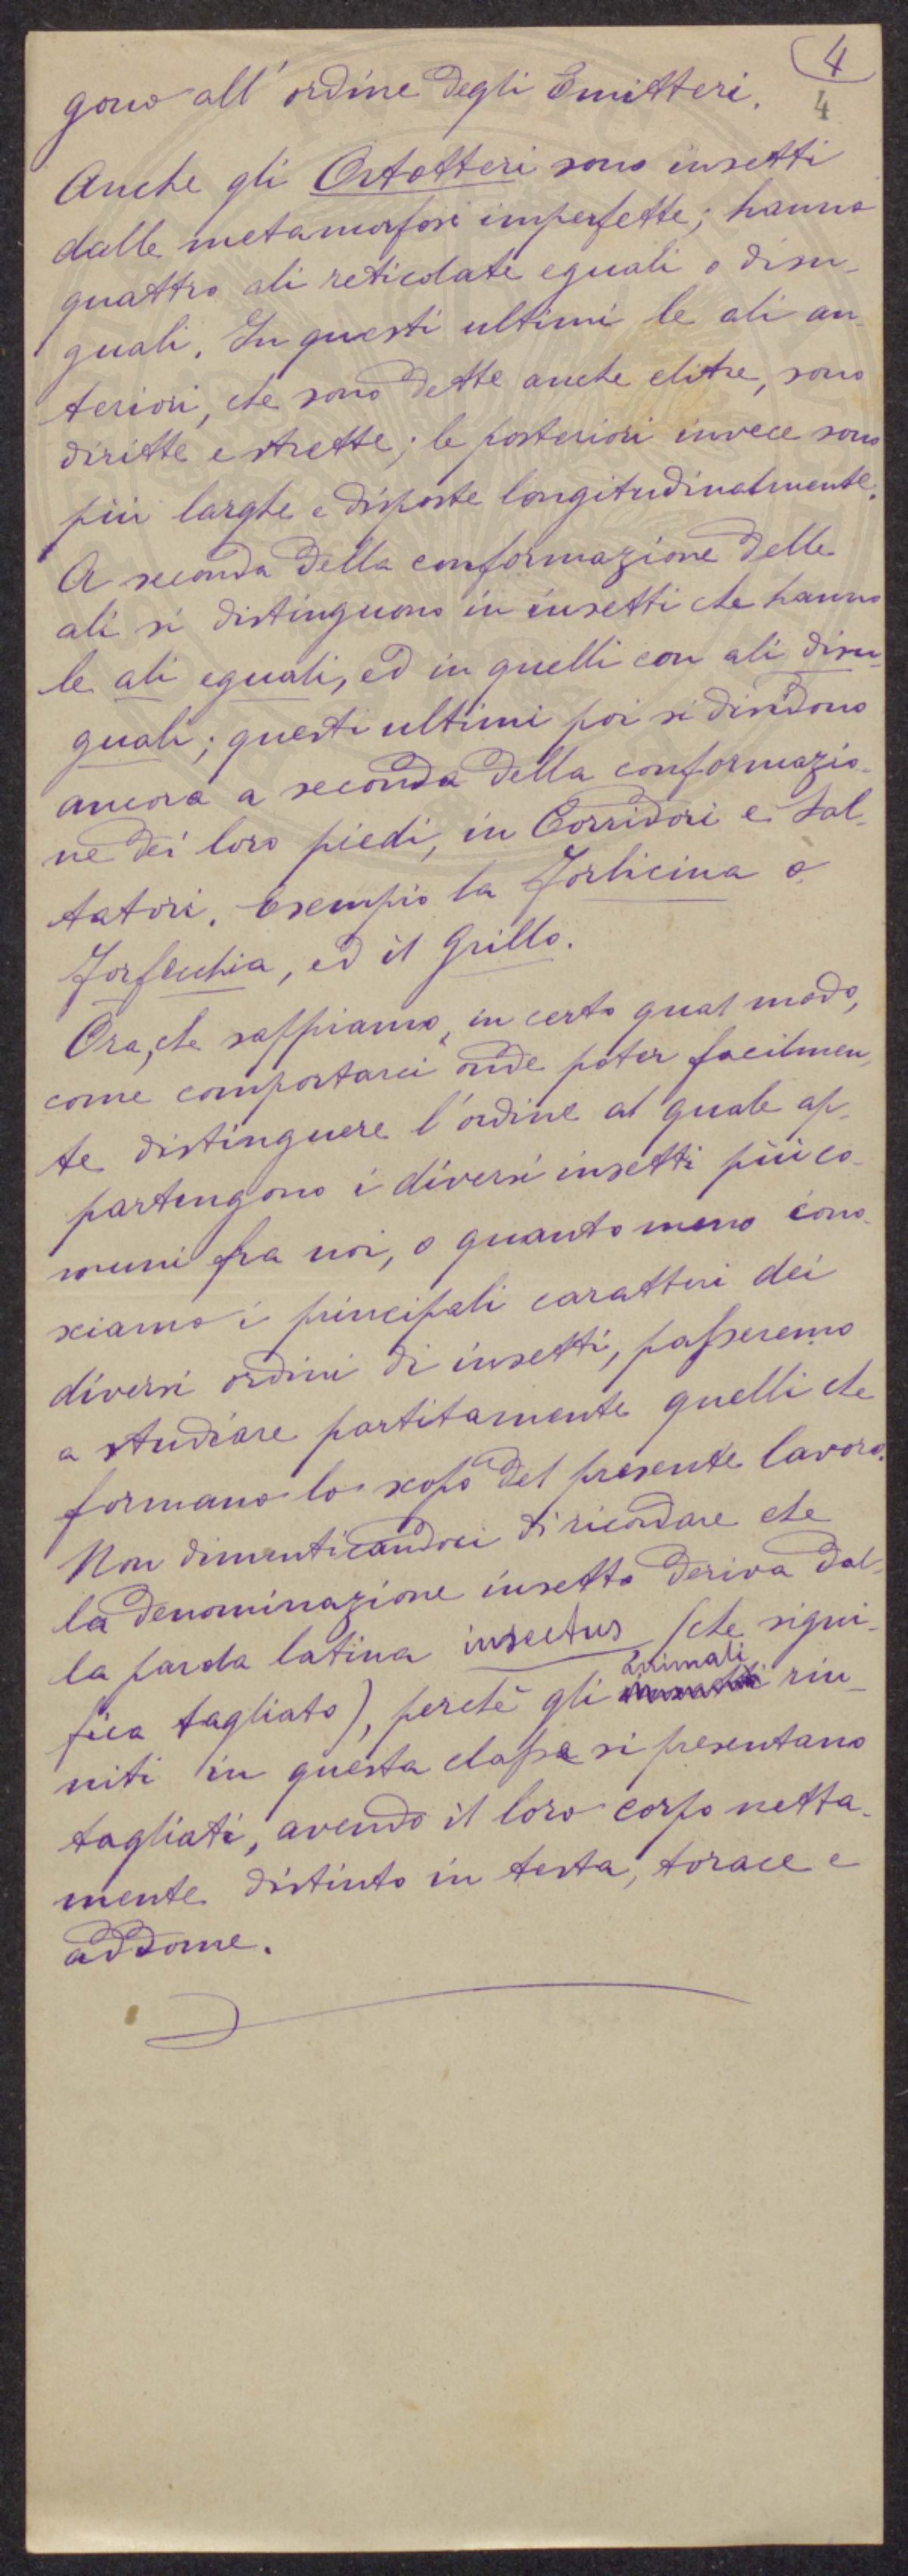 4
gono all'ordine degli Emitteri.
4
Anche gli Ortotteri sono insetti
dalle metamorfosi imperfette; hanno
quattro ali reticolate eguali o disu-
guali. In questi ultimi le ali an-
teriori, che sono dette anche elitre, sono
diritte e strette; le posteriori invece sono
più larghe e disposte longitudinalmente.
A seconda della conformazione delle
ali si distinguono in insetti che hanno
le ali eguali, ed in quelli con ali disu-
guali; questi ultimi poi si dividono
ancora a seconda della conformazio-
ne dei loro piedi, in Corridori e Sal-
tatori. Esempio la Forbicina o
Forfecchia, ed il Grillo.
Ora, che sappiamo, in certo qual modo,
come comportarci onde poter facilmen-
te distinguere l'ordine al quale ap-
partengono i diversi insetti più co-
muni fra noi, o quanto meno cono-
sciamo i principali caratteri dei
diversi ordini di insetti, passeremo
a studiare partitamente quelli che
formano lo scopo del presente lavoro.
Non dimenticandoci di ricordare che
la denominazione insetto deriva dal-
la parola latina insectus (che signi-
animali
fica tagliato), perchè gli riu-
niti in questa classe si presentano
tagliati, avendo il loro corpo netta-
mente distinto in testa, torace e
addome.